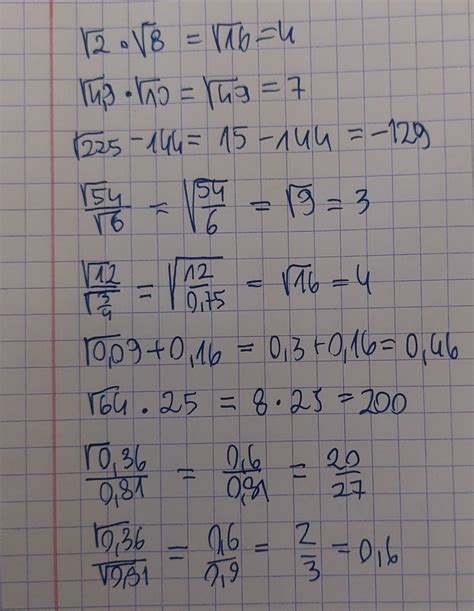 √2 · √8 = √16 = 4
√4,9 · √10 = √49 = 7
√225 - 144 = 15 - 144 = -129
√54/√6 = √(54/6) = √9 = 3
√12/√(3/4) = √(12/0,75) = √16 = 4
√0,09 + 0,16 = 0,3 + 0,16 = 0,46
√64 · 25 = 8 · 25 = 200
√0,36/0,81 = 0,6/0,81 = 20/27
√0,36/√0,81 = 0,6/0,9 = 2/3 = 0,6